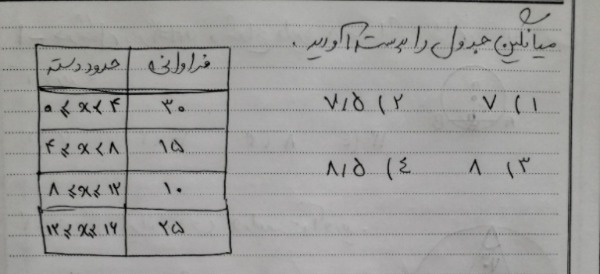 میانگین جدول را بدست آورید.
۱) ۷
۲) ۷/۵
۳) ۸
۴) ۸/۵
حدود دسته فراوانی
۰ ≤ x < ۴ ۳۰
۴ ≤ x < ۸ ۱۵
۸ ≤ x < ۱۲ ۱۰
۱۲ ≤ x ≤ ۱۶ ۲۵